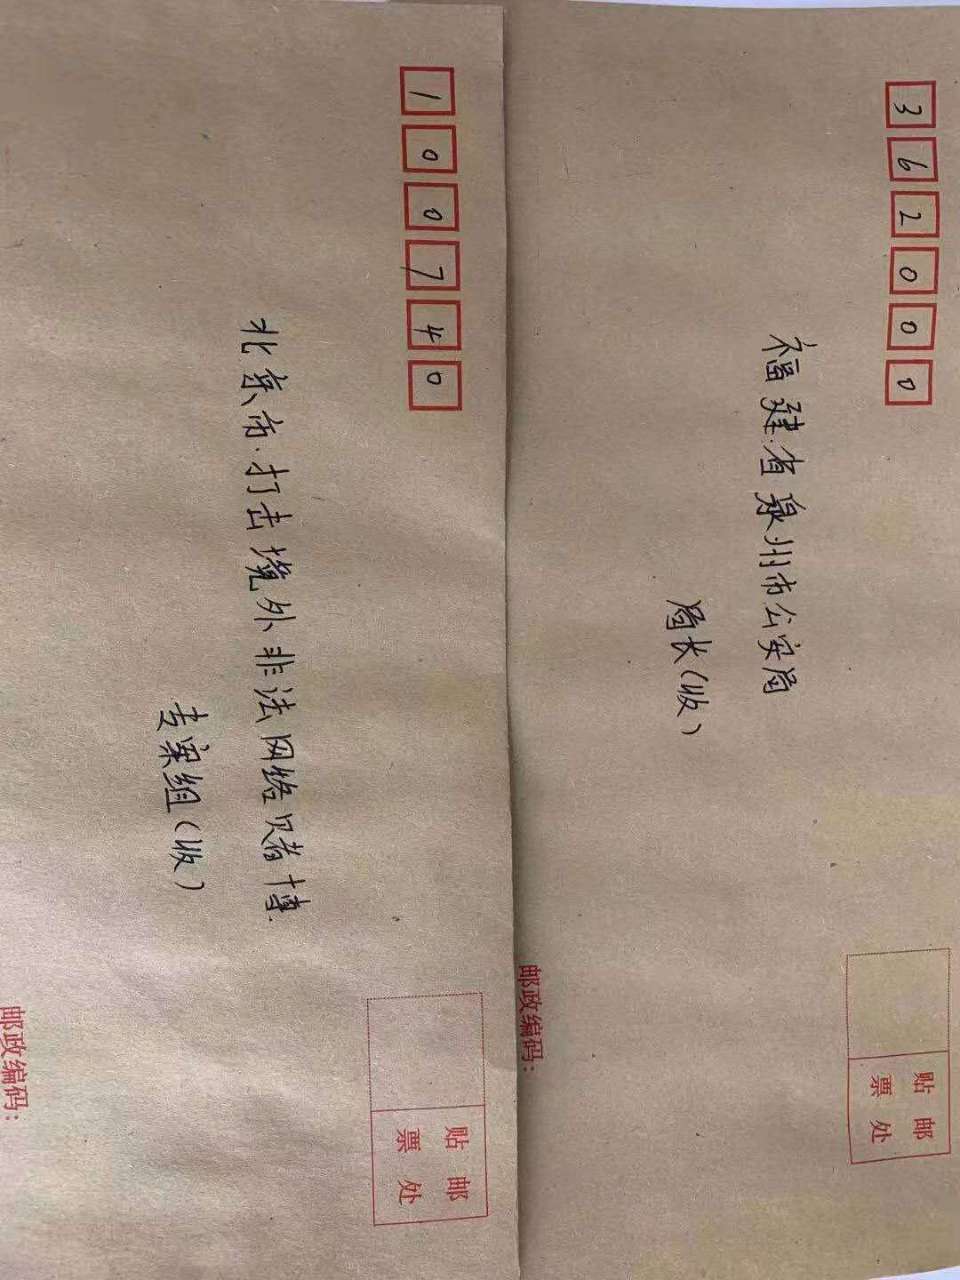 362000
福建省泉州市公安局
局长(收)
贴 邮
票 处
邮政编码:
100740
北京市.打击境外非法网络赌博.
专案组(收)
贴 邮
票 处
邮政编码: